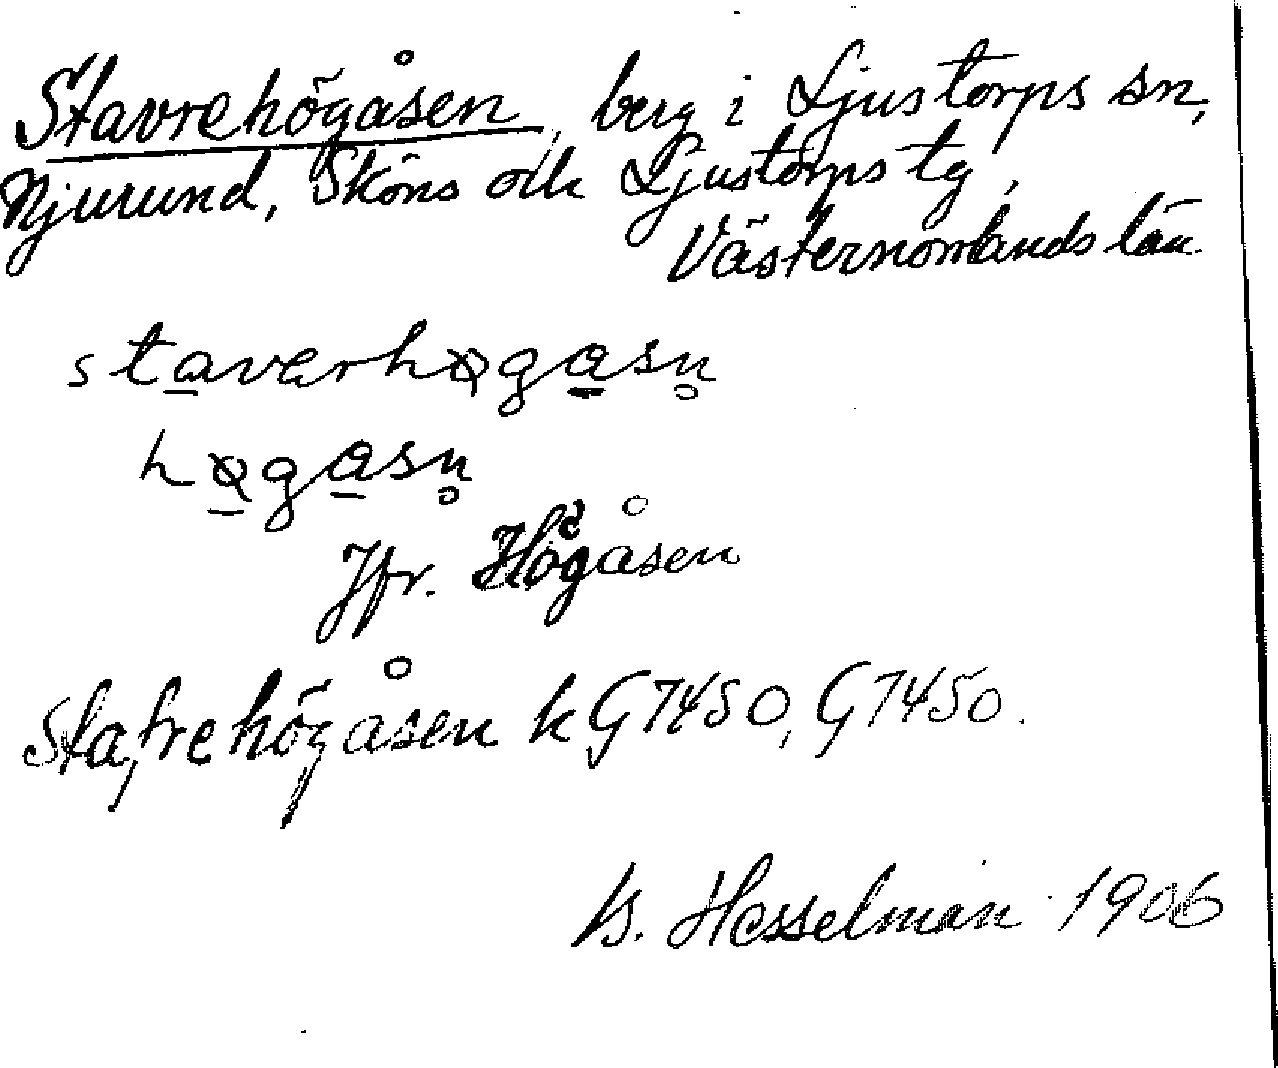 Stavrehögåsen, berg i Ljustorps sn,
Njurund, Sköns och Ljustorps tg,
Västernorrlands län.
staverhøgasn̥
høgasn̥
Jfr. Högåsen
Stafrehögåsen kG7450, G7450.
B. Hesselman 1906